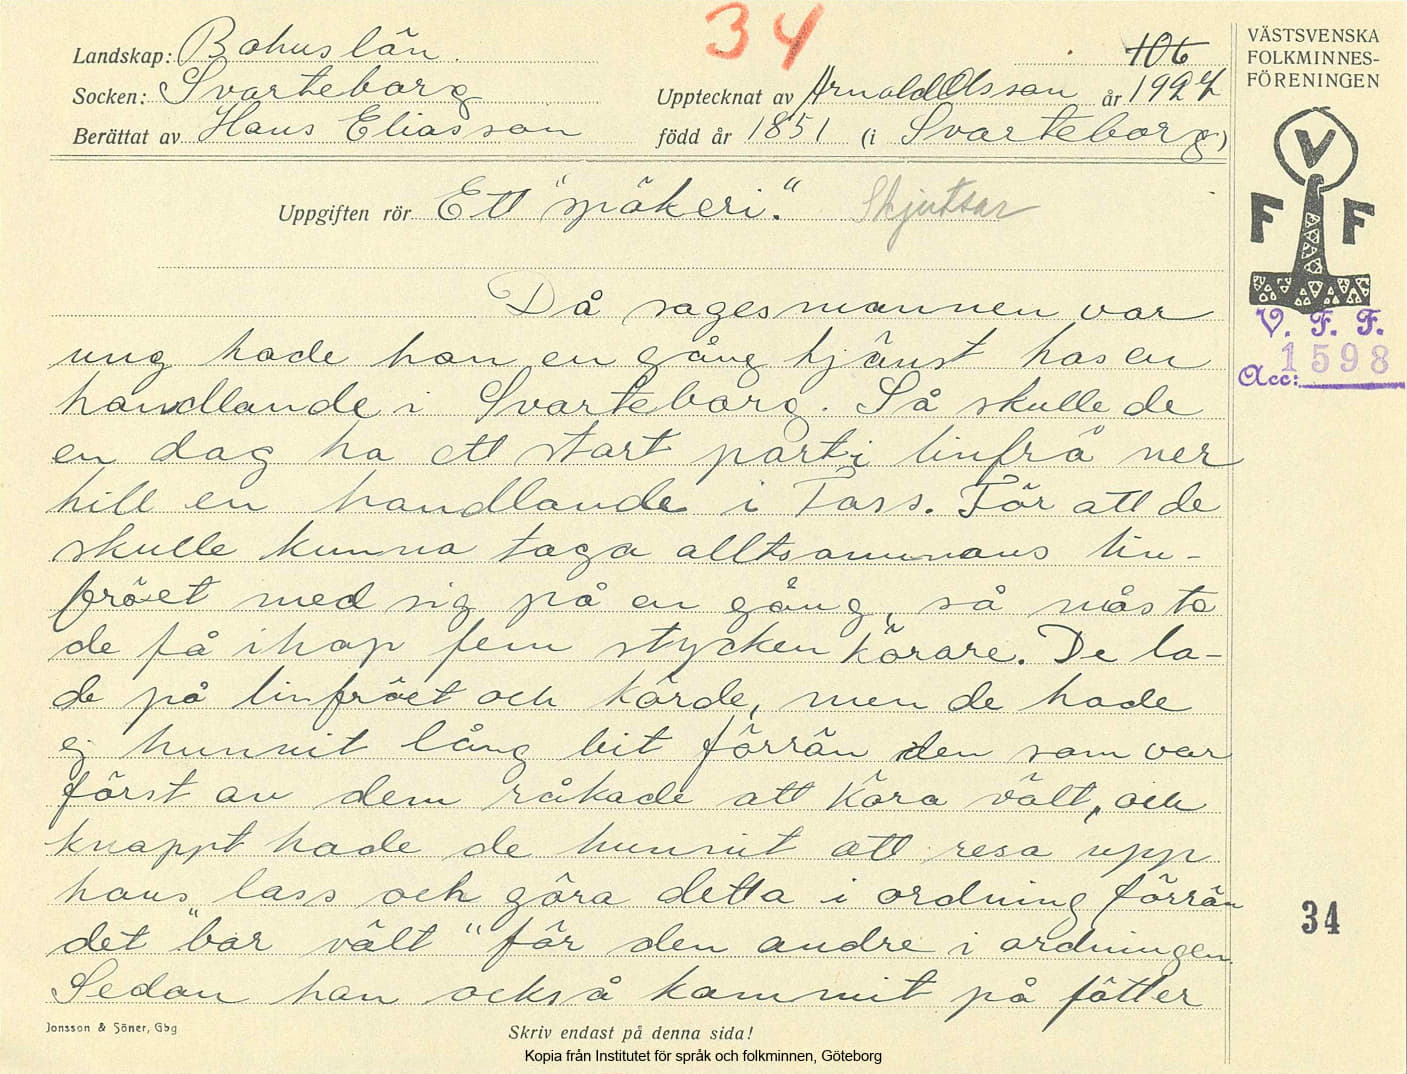 34
Landskap: Bohuslän
106
VÄSTSVENSKA
FOLKMINNES-
FÖRENINGEN
Socken: Svarteborg
Upptecknat av Arnold Olsson år 1927
Berättat av Hans Eliasson
född år 1851 (i Svarteborg)
Uppgiften rör Ett "spökeri." Skjutsar
V
F F
Då sagesmannen var
ung hade han en gång tjänst hos en
handlande i Svarteborg. Så skulle de
en dag ha ett stort parti linfrö ner
till en handlande i Foss. För att de
skulle kunna taga alltsammans lin-
fröet med sig på en gång, så måste
de få ihop fem stycken körare. De la-
de på linfröet och körde, men de hade
ej hunnit lång bit förrän den som var
först av dem råkade att köra vält, och
knappt hade de hunnit att resa upp
hans lass och göra detta i ordning förrän
det "bar vält" för den andre i ordningen.
Sedan han också kommit på fötter
V. F. F.
Acc: 1598
34
Jonsson & Söner, Gbg
Skriv endast på denna sida!
Kopia från Institutet för språk och folkminnen, Göteborg